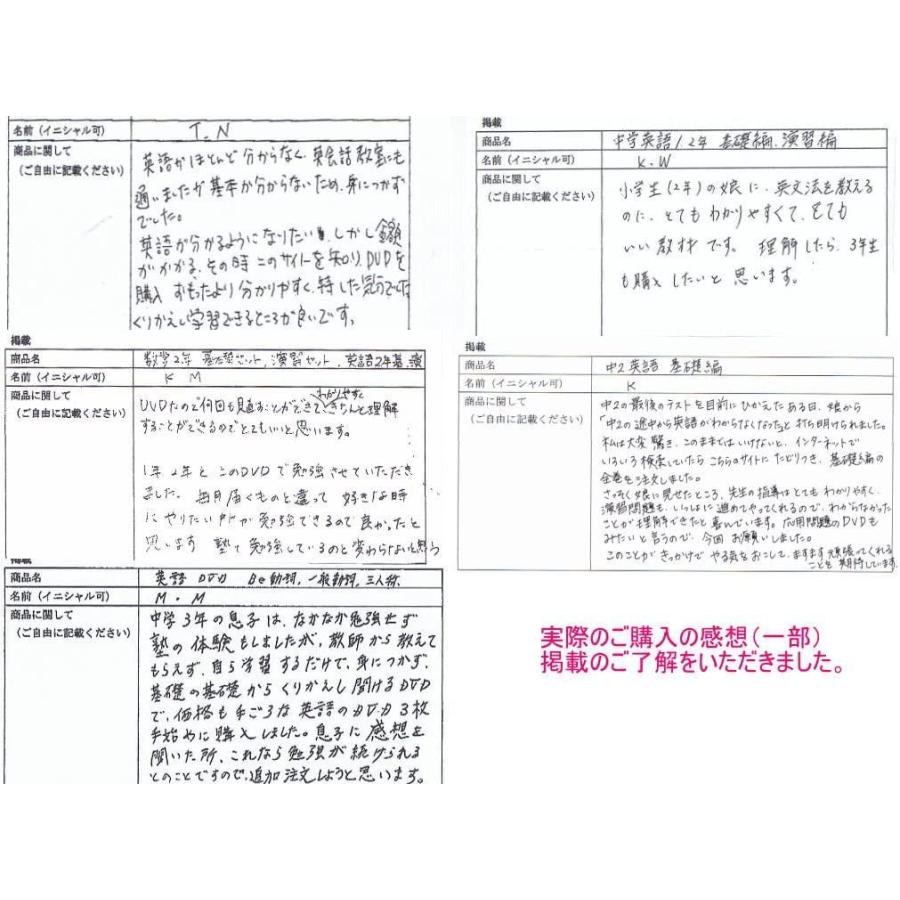 名前（イニシャル可） T.N
商品に関して
（ご自由に記載ください）
英語がほとんど分からなく、英会話教室にも
通いましたが基本が分からないため、身につかず
でした。
英語が分かるようになりたい、しかし金額
がかかる、その時このサイトを知り、DVDを
購入 おもったより分かりやすく、得した気分でした
くりかえし学習できるところが良いです。
掲載
商品名 中学英語1.2年 基礎編、演習編
名前（イニシャル可） K.W
商品に関して
（ご自由に記載ください）
小学生（2年）の娘に、英文法を教える
のに、とてもわかりやすくて、とても
いい教材です。理解したら、3年生
も購入したいと思います。
掲載
商品名 数学2年 基礎セット、演習セット、英語2年基、演
名前（イニシャル可） K M
商品に関して
（ご自由に記載ください）
わかりやすく
DVDなので何回も見直すことができてきちんと理解
することができるのでとてもいいと思います。
1年2年とこのDVDで勉強させていただき
ました。毎月届くものと違って好きな時
にやりたい所が勉強できるので良かったと
思います 塾で勉強しているのと変わらないと思う
掲載
商品名 中2英語 基礎編
名前（イニシャル可） K
商品に関して
（ご自由に記載ください）
中2の最後のテストを目前にひかえたある日、娘から
「中2の途中から英語がわからなくなった」と打ち明けられました。
私は大変驚き、このままではいけないと、インターネットで
いろいろ検索していたらこちらのサイトにたどりつき、基礎編の
全巻を注文しました。
さっそく娘に見せたところ、先生の指導はとてもわかりやすく、
演習問題も、いっしょに進めてやってくれるので、わからなかった
ことが理解できたと喜んでいます。応用問題のDVDも
みたいと言うので、今回お願いしました。
このことがきっかけでやる気をおこして、ますます頑張ってくれる
ことを期待しています。
掲載
商品名 英語 DVD Be動詞、一般動詞、三人称
名前（イニシャル可） M.M
商品に関して
（ご自由に記載ください）
中学3年の息子は、なかなか勉強せず
塾の体験もしましたが、教師から教えて
もらえず、自ら学習するだけで、身につかず、
基礎の基礎からくりかえし聞けるDVD
で、価格も手ごろな英語のDVD3枚
手始めに購入しました。息子に感想を
聞いた所、これなら勉強が続けられる
とのことですので、追加注文しようと思います。
実際のご購入の感想（一部）
掲載のご了解をいただきました。